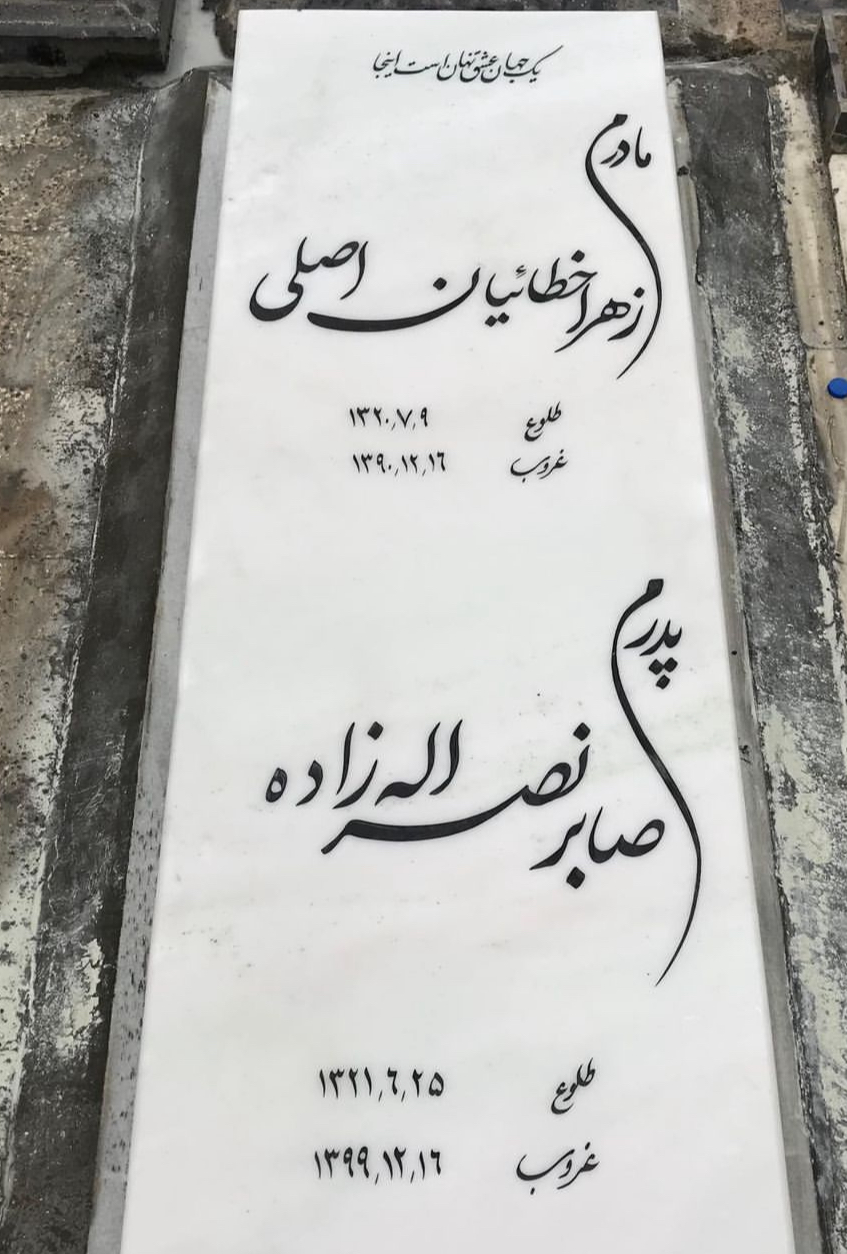 یک جهان عشق نهان است اینجا
مادرم
زهرا خطائیان اصلی
طلوع ۱۳۲۰٫۷٫۹
غروب ۱۳۹۰٫۱۲٫۱۶
پدرم
صابر نصراله زاده
طلوع ۱۳۲۱٫۶٫۲۵
غروب ۱۳۹۹٫۱۲٫۱۶